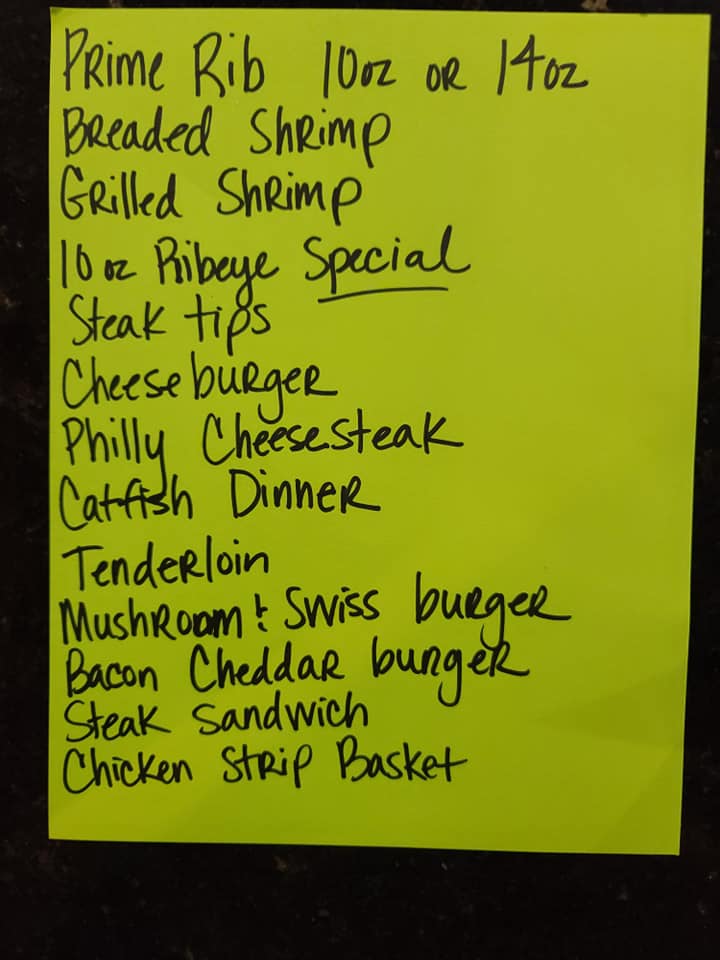 Prime Rib 10oz or 14oz
Breaded Shrimp
Grilled Shrimp
10 oz Ribeye Special
Steak tips
Cheeseburger
Philly Cheesesteak
Catfish Dinner
Tenderloin
Mushroom & Swiss burger
Bacon Cheddar burger
Steak Sandwich
Chicken Strip Basket